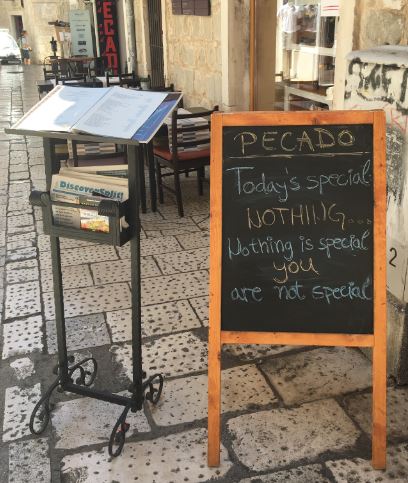 PECADO
PECADO
Today's special:
NOTHING...
Nothing is special
you
are not special
DiscoverSplit
2